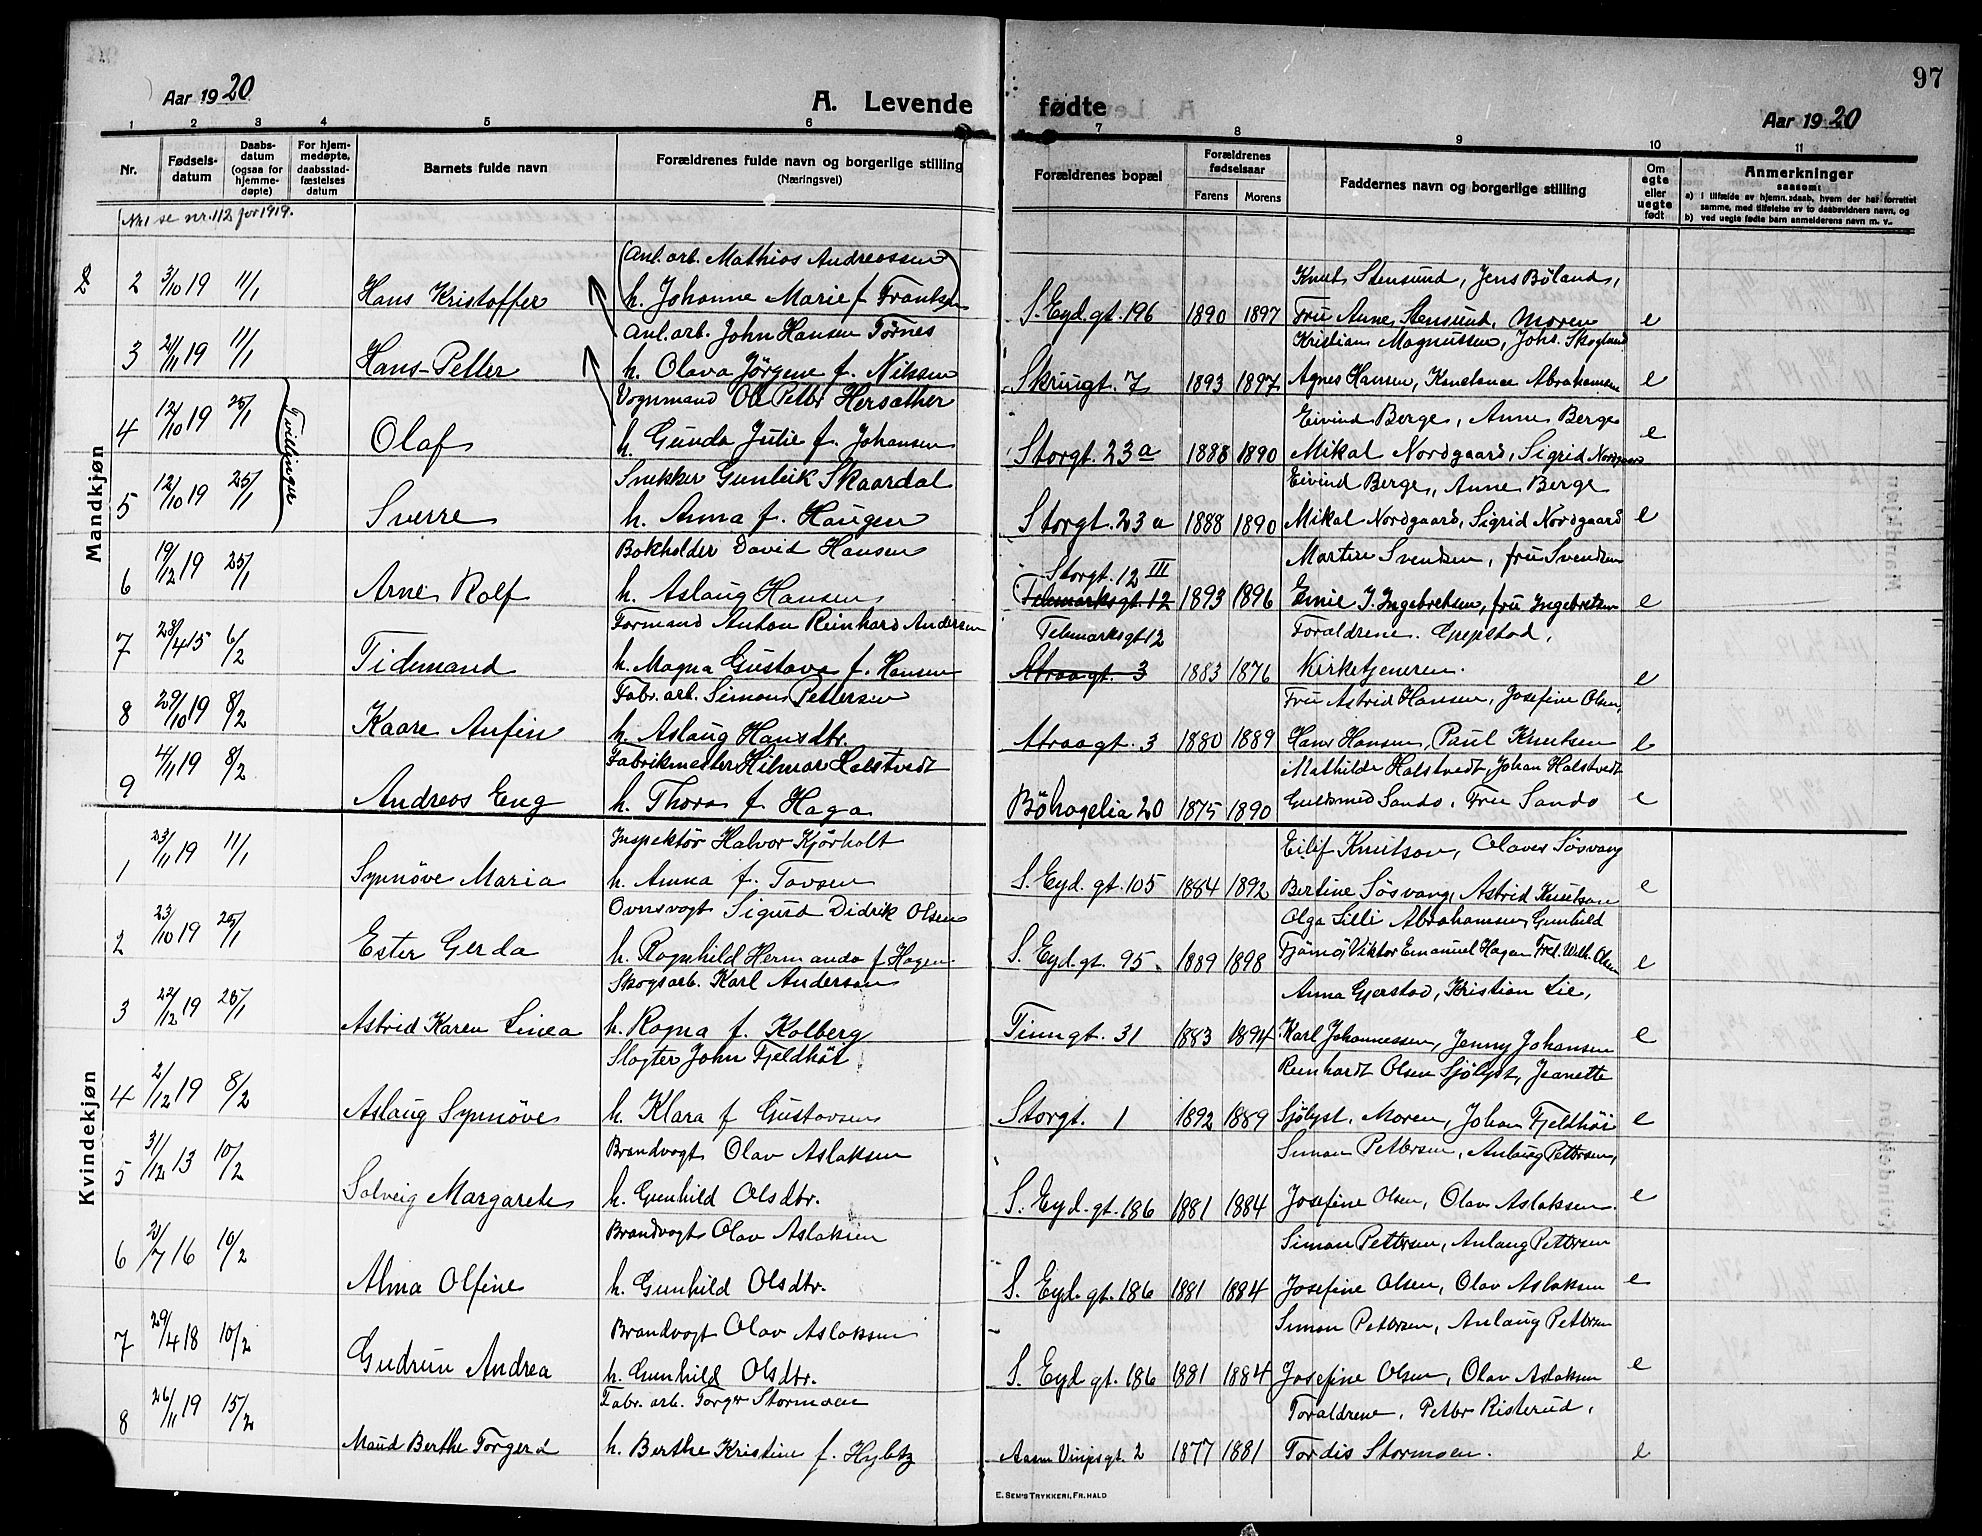 97
Aar 1920
A. Levende
fødte
Aar 1920
1 2 3 4 5 6 7 8 9 10 11
Nr.
Fødsels-
datum
Daabs-
datum
(ogsaa for
hjemme-
døpte)
For hjem-
medøpte,
daabsstad-
fæstelses
datum
Barnets fulde navn
Forældrenes fulde navn og borgerlige stilling
(Næringsvei)
Forældrenes bopæl
Forældrenes
fødselsaar
Farens Morens
Faddernes navn og borgerlige stilling
Om
egte
eller
uegte
født
Anmerkninger
saasom:
a) i tilfælde av hjemmedaab, hvem der har forrettet
samme, med tilføielse av to daabsvidners navn, og
b) ved uegte fødte barn anmelderens navn m. v.
Nr. 1 se nr. 112 for 1919.
Mandkjøn
Anl. arb. Mathias Andreassen Knut Stensund, Jens Böland,
2 2 3/10 19 11/1 Hans Kristoffer h. Johanne Marie f. Frantsen S. Eyd. gt. 196 1890 1897 Fru Anne Stensund, Moren e
Anl. arb. John Hansen Tørnes Kristian Magnussen, Johs. Skogland
3 2/11 19 11/1 Hans-Petter h. Olava Jørgine f. Nilssen Skriugt. 7 1893 1897 Agnes Hansen, Konstance Abrahamsen e
Vognmand Ole Petter Hersæther Eivind Berge, Anne Berge
4 12/10 19 25/1 Tvillinger Olaf h. Gunda Julie f. Johansen Storgt. 23a 1888 1890 Mikal Nordgaard, Sigrid Nordgaard e
Snekker Gunleik Skaardal Eivind Berge, Anne Berge
5 12/10 19 25/1 Sverre h. Anna f. Haugen Storgt. 23a 1888 1890 Mikal Nordgaard, Sigrid Nordgaard e
Bokholder David Hansen Storgt. 12 III Martin Svendsen, fru Svendsen
6 19/12 19 25/1 Arne Rolf h. Aslaug Hansen Telemarksgt. 12 1893 1896 Emie J. Ingebretsen, fru Ingebretsen e
Formand Anton Reinhard Andersen Telemarksgt 12 Forældrene. Grepstad,
7 28/4 15 6/2 Tidemand h. Magna Gustava f. Hansen Straagt. 3 1883 1876 Kirketjeneren. e
Fabr. arb. Simon Pettersen Fru Astrid Hansen, Josefine Olsen,
8 29/10 19 8/2 Kaare Anfin h. Aslaug Hansdtr. Straagt. 3 1880 1889 Hans Hansen, Paul Knutsen e
Fabrikmester Hilmar Halstvedt Mathilde Halstvedt, Johan Halstvedt
9 4/11 19 8/2 Andreas Eng h. Thora f. Haga Böhagelia 20 1875 1890 Guldsmed Sando, Fru Sando e
Kvindekjøn
Inspektør Halvor Kjørholt Eilif Knutson, Olaves Søsvang
1 23/11 19 11/1 Synnöve Maria h. Anna f. Tovsen S. Eyd. gt. 105 1884 1892 Bertine Søsvang, Astrid Knutson e
Oversvogt Sigurd Didrik Olsen Olga Lilli Abrahamsen, Gunhild
2 23/10 19 25/1 Ester Gerda h. Ragnhild Hermanda f. Hagen S. Eyd. gt. 95 1889 1898 Tjömöi, Viktor Emanuel Hagen Fred. Wilh. Olsen e
Skogsarb. Karl Anderson Anna Gjerstad, Kristian Lie,
3 22/12 19 25/1 Astrid Karen Linea h. Ragna f. Kolberg Tinngt. 31 1883 1894 Karl Johannessen, Jenny Johansen e
Slagter John Fjeldhöi Reinhardt Olsen Sjölyst, Jeanette
4 2/12 19 8/2 Aslaug Synnöve h. Klara f. Gustavsen Storgt. 1 1892 1889 Sjölyst, Moren, Johan Fjeldhöi e
Brandvogt Olav Aslaksen Simon Pettersen, Anlaug Pettersen,
5 31/12 13 10/2 Solveig Margarete h. Gunhild Olsdtr. S. Eyd. gt. 186 1881 1884 Josefine Olsen, Olav Aslaksen. e
Brandvogt Olav Aslaksen Simon Pettersen, Anlaug Pettersen
6 21/7 16 10/2 Alma Olfine h. Gunhild Olsdtr. S. Eyd. gt. 186 1881 1884 Josefine Olsen, Olav Aslaksen e
Brandvogt Olav Aslaksen Simon Pettersen, Anlaug Pettersen
7 29/4 18 10/2 Gudrun Andrea h. Gunhild Olsdtr. S. Eyd gt. 186 1881 1884 Josefine Olsen, Olav Aslaksen e
Fabr. arb. Torger Stormoen Forældrene, Petter Risterud,
8 26/11 19 15/2 Maud Berthe Torgerd h. Berthe Kristine f. Hybtz Aasm Vinjesgt. 2 1877 1881 Tordis Stormoen. e
E. SEM'S TRYKKERI, FR. HALD